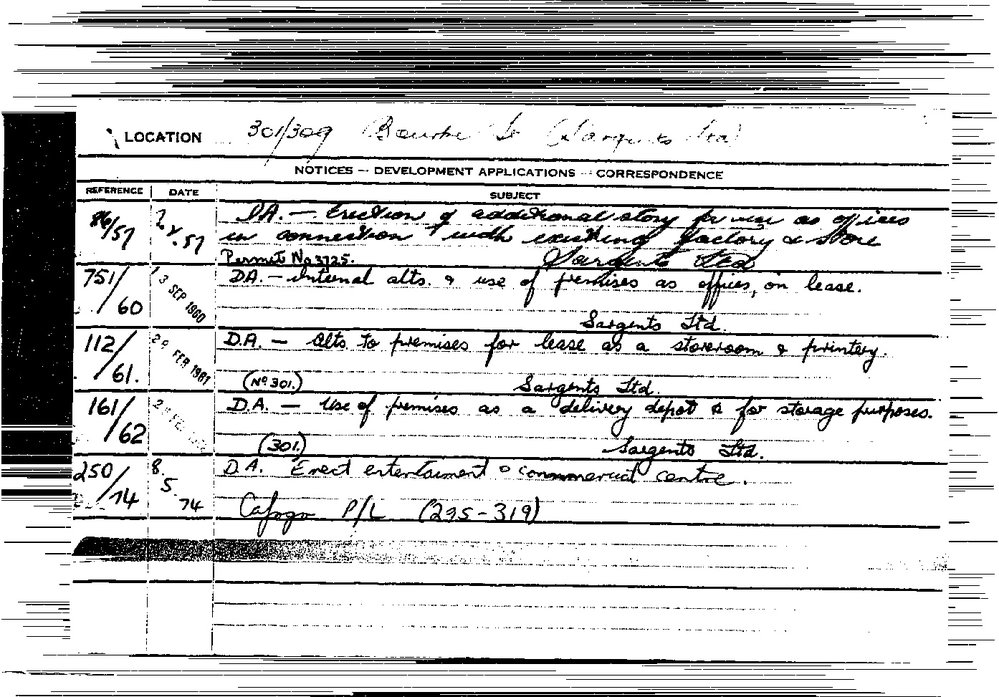 LOCATION 301/309 Bourke St (Sargents Ltd)
NOTICES — DEVELOPMENT APPLICATIONS — CORRESPONDENCE
REFERENCE DATE SUBJECT
86/57 57 D.A. — Erection of additional story for use as offices
in connection with existing factory & store
Permit No 3725. Sargents Ltd
751/60 13 SEP 1960 D.A. — Internal alts. & use of premises as offices, on lease.
Sargents Ltd.
112/61. FEB 1961 D.A. — Alts to premises for lease as a storeroom & printery.
(No 301.) Sargents Ltd.
161/62 FEB D.A. — Use of premises as a delivery depot & for storage purposes.
(301.) Sargents Ltd.
250/74 8.5.74 D.A. Erect entertaiment & commercial centre.
P/L (295-319)